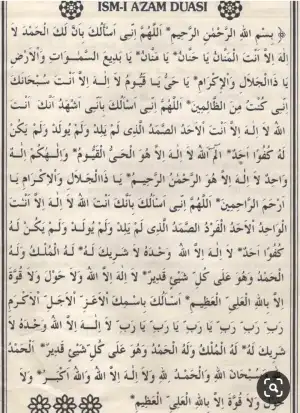 ISM-I AZAM DUASI
﴿ بِسْمِ اللهِ الرَّحْمٰنِ الرَّحِيمِ * اَللّٰهُمَّ اِنِّى اَسْأَلُكَ بِاَنَّ لَكَ الْحَمْدُ لَا
اِلٰهَ اِلَّا اَنْتَ الْمَنَّانُ يَا حَنَّانُ * يَا مَنَّانُ * يَا بَدِيعَ السَّمٰوَاتِ وَالْاَرْضِ
يَا ذَاالْجَلَالِ وَالْاِكْرَامِ * يَا حَىُّ يَا قَيُّومُ لَا اِلٰهَ اِلَّا اَنْتَ سُبْحَانَكَ
اِنِّى كُنْتُ مِنَ الظَّالِمِينَ * اَللّٰهُمَّ اِنِّى اَسْأَلُكَ بِاَنِّى اَشْهَدُ اَنَّكَ اَنْتَ
اللهُ لَا اِلٰهَ اِلَّا اَنْتَ الْاَحَدُ الصَّمَدُ الَّذِى لَمْ يَلِدْ وَلَمْ يُولَدْ وَلَمْ يَكُنْ
لَهُ كُفُوًا اَحَدٌ * الٓمٓ اَللهُ لَا اِلٰهَ اِلَّا هُوَ الْحَىُّ الْقَيُّومُ * وَاِلٰهُكُمْ اِلٰهٌ
وَاحِدٌ لَا اِلٰهَ اِلَّا هُوَ الرَّحْمٰنُ الرَّحِيمُ * يَا ذَاالْجَلَالِ وَالْاِكْرَامِ يَا
اَرْحَمَ الرَّاحِمِينَ * اَللّٰهُمَّ اِنِّى اَسْأَلُكَ بِاَنَّكَ اَنْتَ اللهُ لَا اِلٰهَ اِلَّا اَنْتَ
الْوَاحِدُ الْاَحَدُ الْفَرْدُ الصَّمَدُ الَّذِى لَمْ يَلِدْ وَلَمْ يُولَدْ وَلَمْ يَكُنْ لَهُ
كُفُوًا اَحَدٌ * لَا اِلٰهَ اِلَّا اللهُ وَحْدَهُ لَا شَرِيكَ لَهُ * لَهُ الْمُلْكُ وَلَهُ
الْحَمْدُ وَهُوَ عَلٰى كُلِّ شَيْئٍ قَدِيرٌ * لَا اِلٰهَ اِلَّا اللهُ وَلَا حَوْلَ وَلَا قُوَّةَ
اِلَّا بِاللهِ الْعَلِىِّ الْعَظِيمِ * اَسْأَلُكَ بِاسْمِكَ الْاَعَزِّ الْاَجَلِّ الْاَكْرَمِ
رَبِّ رَبِّ رَبِّ يَا رَبِّ يَا رَبِّ يَا رَبِّ * لَا اِلٰهَ اِلَّا اللهُ وَحْدَهُ لَا
شَرِيكَ لَهُ * لَهُ الْمُلْكُ وَلَهُ الْحَمْدُ وَهُوَ عَلٰى كُلِّ شَيْئٍ قَدِيرٌ * اَلْحَمْدُ
سُبْحَانَ اللهِ وَالْحَمْدُ لِلّٰهِ وَلَا اِلٰهَ اِلَّا اللهُ وَاللهُ اَكْبَرُ * وَلَا
حَوْلَ وَلَا قُوَّةَ اِلَّا بِاللهِ الْعَلِىِّ الْعَظِيمِ *